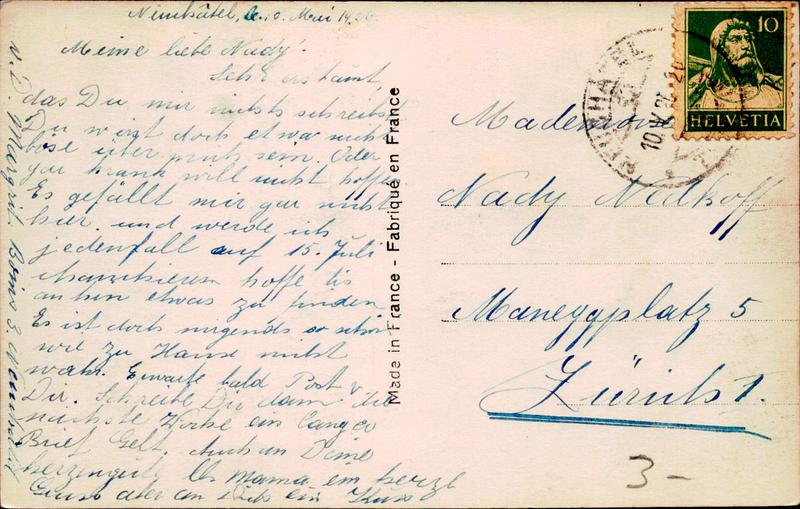 Neuchâtel, le 10. Mai 1926
Meine liebe Nady.
Sehr erstaunt,
das Du mir nichts schreibst
Du wirst doch etwa nicht
böse über mich sein. Oder
gar krank will nicht hoffe
Es gefällt mir gar nicht
hier und werde ich
jedenfall auf 15. Juli
hoffe bis
anhin etwas zu finden
Es ist doch nirgends so schön
wie zu Hause nicht
wahr. Erwarte bald Post v.
Dir. Schreibe Dir dann die
nächste Woche ein lange
Brief Gelt. Auch an Deine
herzensgute Mama ein herzl
Gruss aber an Dich ein Kuss
Margrit
Made in France - Fabriqué en France
10
HELVETIA
NEUCHATEL
10.V.26
Mademoise
Nady Nedkoff
Maneggplatz 5
Zürich 1.
3-